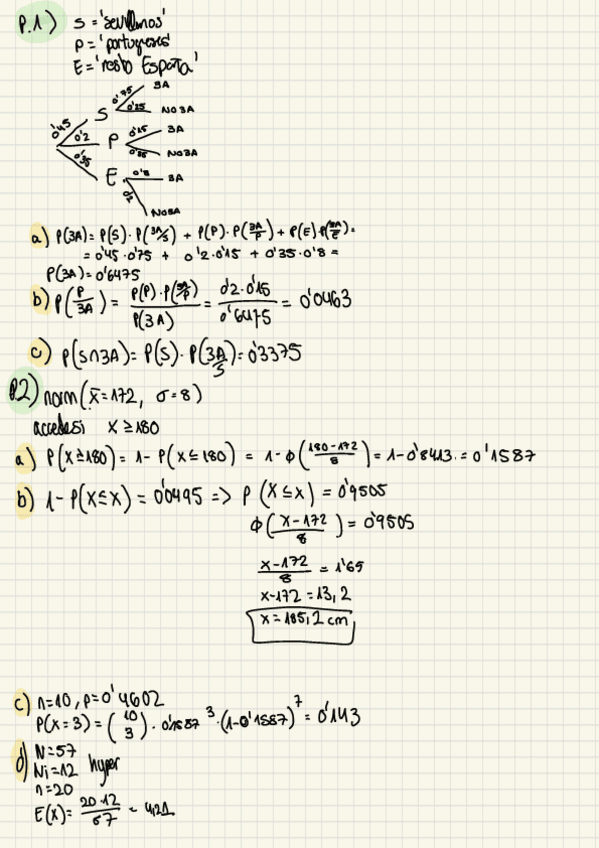 P.1) S = 'sevillanos'
P = 'portugueses'
E = 'resto España'
0'45 S 0'75 3A
0'25 NO3A
0'2 P 0'15 3A
0'85 NO3A
0'35 E 0'8 3A
0'2 NO3A
a) P(3A) = P(S) · P(3A/S) + P(P) · P(3A/P) + P(E) · P(3A/E) =
= 0'45 · 0'75 + 0'2 · 0'15 + 0'35 · 0'8 =
P(3A) = 0'6475
b) P(P/3A) = P(P) · P(3A/P) / P(3A) = 0'2 · 0'15 / 0'6475 = 0'0463
c) P(S∩3A) = P(S) · P(3A/S) = 0'3375
P.2) norm (x̄ = 172, σ = 8)
accede si X ≥ 180
a) P(X ≥ 180) = 1 - P(X ≤ 180) = 1 - ϕ(180 - 172 / 8) = 1 - 0'8413 = 0'1587
b) 1 - P(X ≤ x) = 0'0495 => P(X ≤ x) = 0'9505
ϕ(x - 172 / 8) = 0'9505
x - 172 / 8 = 1'65
x - 172 = 13,2
x = 185,2 cm
c) n = 10, p = 0'4602
P(X = 3) = (10 3) · 0'1587³ · (1 - 0'1587)⁷ = 0'143
d) N = 57
Ni = 12 hyper
n = 20
E(X) = 20·12 / 57 = 4,21